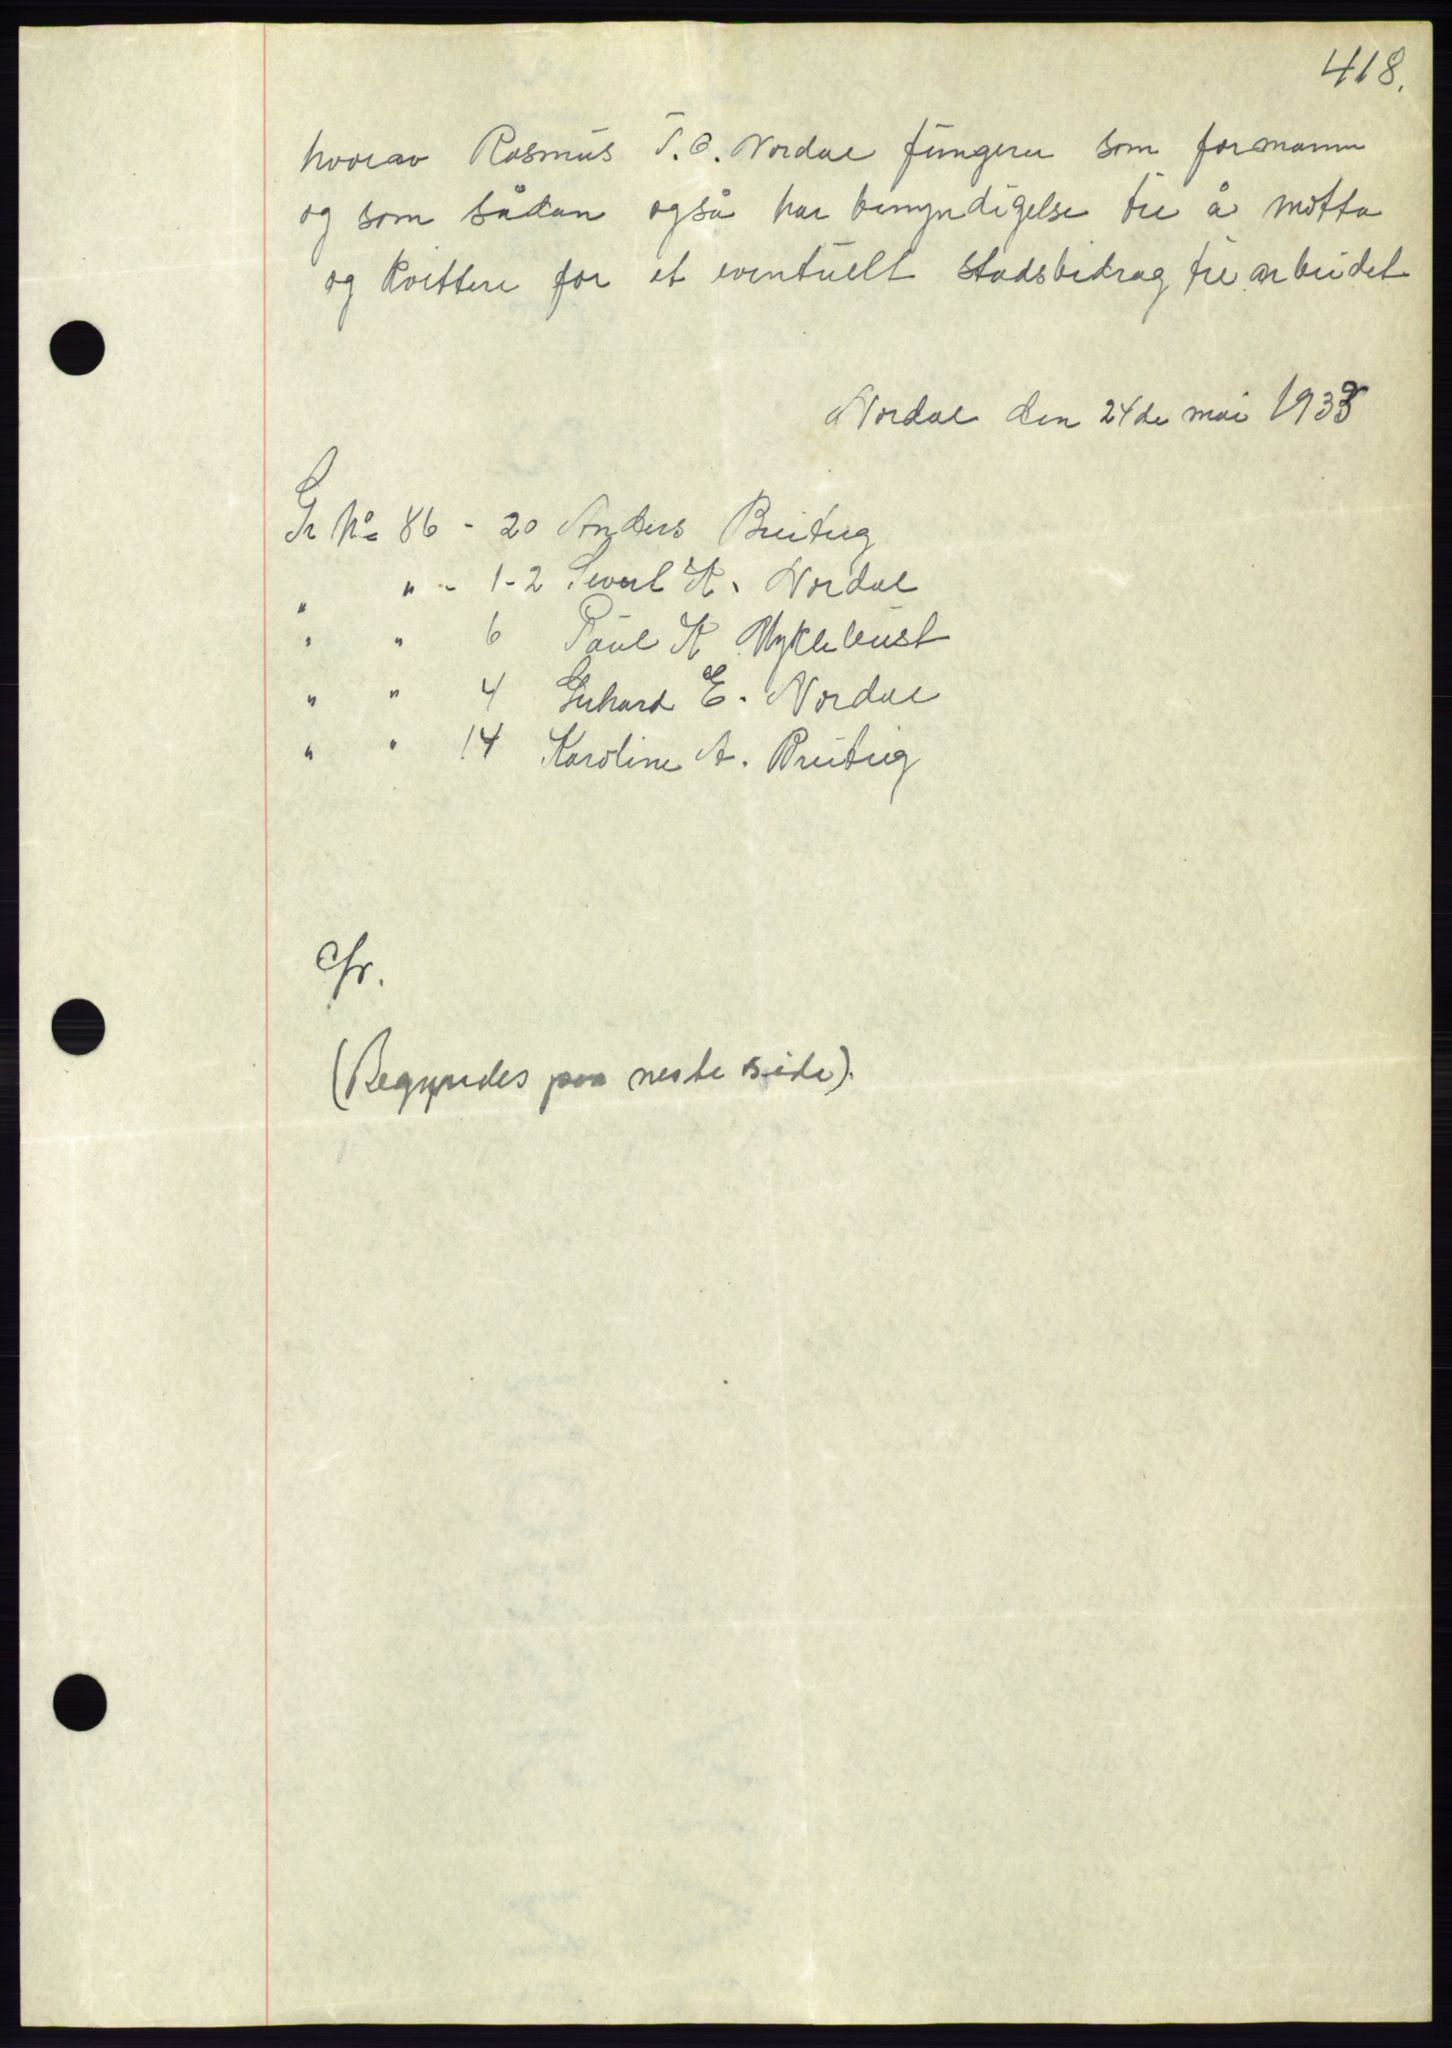 418.
hvorav Rasmus T. O. Nordal fungerer som formann
og som sådan også har bemyndigelse til å motta
og kvittere for et eventuelt stadsbidrag til arbeidet
Nordal den 24de mai 1933
Gr No 86 - 20 Anders Breiteig
" " - 1-2 Sivert K. Nordal
" " 6 Paul K Myklebust
" " 4 Gerhard E. Nordal
" " 14 Karoline A. Breiteig
(Begyndes paa neste side).